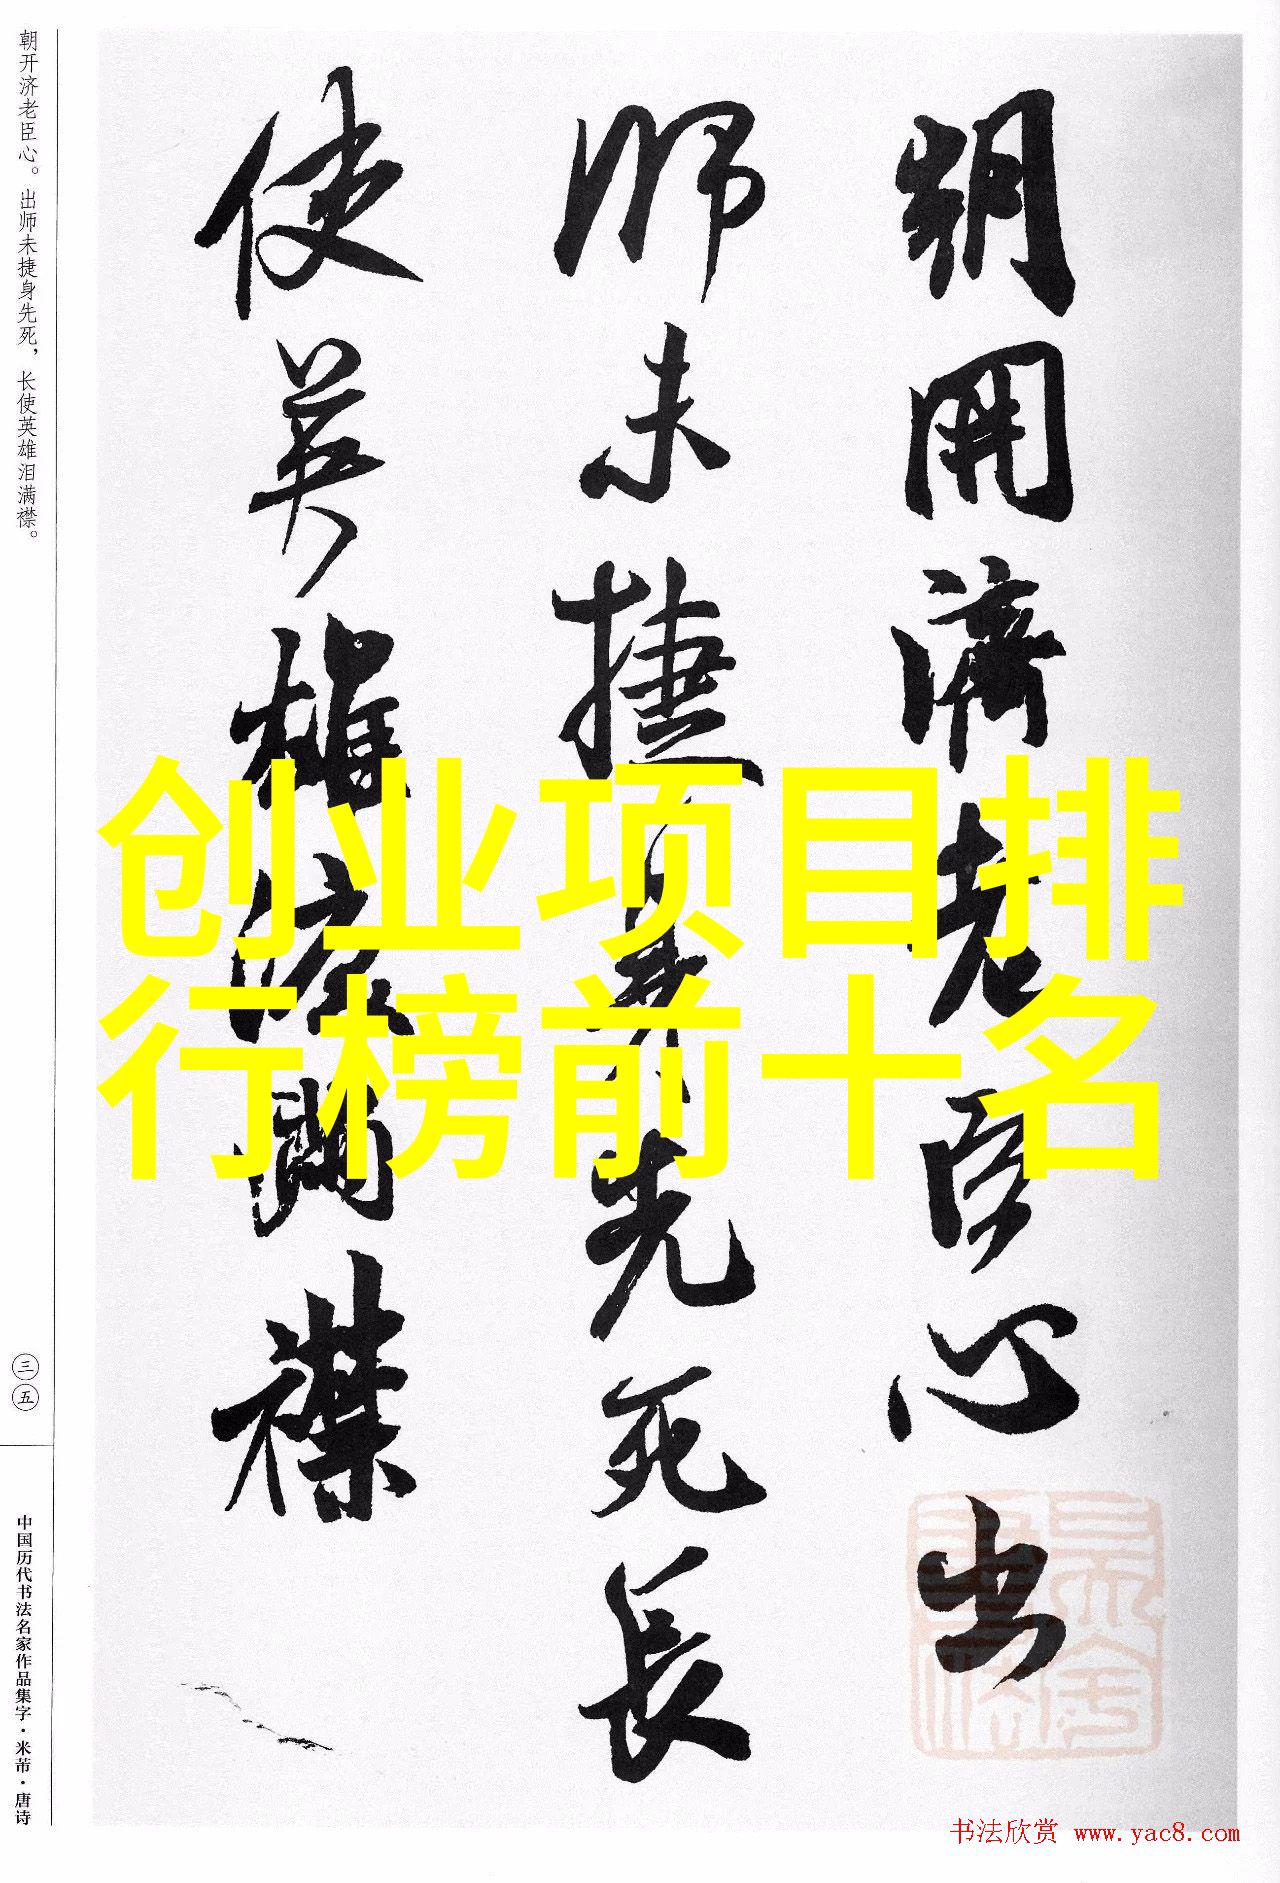 朝開濟老臣心出
師未捷身先死長
使英雄淚滿襟
创业项目排
行榜前十名
朝开济老臣心。出师未捷身先死，长使英雄泪满襟。
三五
中国历代书法名家作品集字·米芾·唐诗
书法欣赏 www.yac8.com